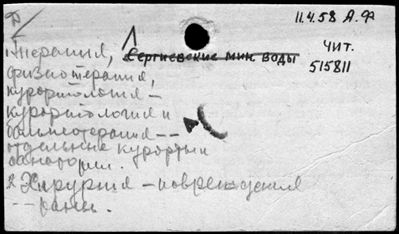 11.4.58 А.Ф
Сергиевские мин. воды
чит.
515811
терапия,
физиотерапия,
курортология —
курортология и
бальнеотерапия --
отдельные курорты и
санатории.
2 Хирургия — повреждения
-- раны.